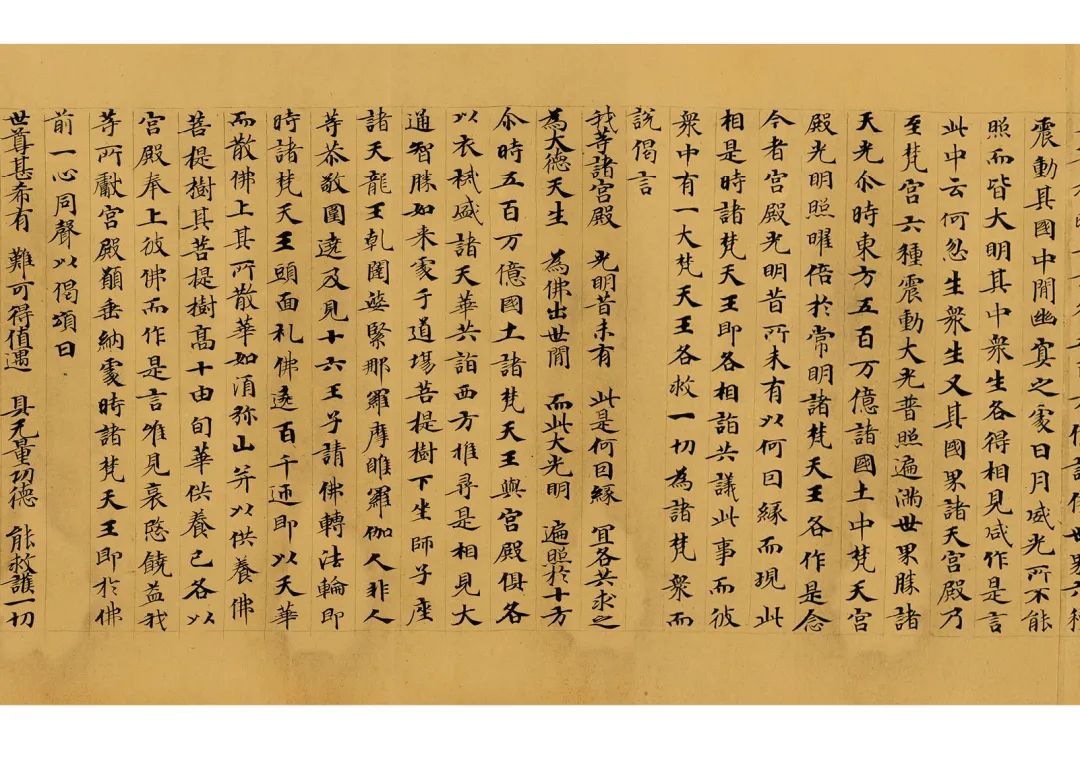 震動其國中間幽冥之處日月威光所不能
照而皆大明其中衆生各得相見咸作是言
此中云何忽生衆生又其國界諸天宮殿乃
至梵宮六種震動大光普照遍滿世界勝諸
天光尒時東方五百万億諸國土中梵天宮
殿光明照曜倍於常明諸梵天王各作是念
今者宮殿光明昔所未有以何因緣而現此
相是時諸梵天王即各相詣共議此事而彼
衆中有一大梵天王名救一切為諸梵衆而
說偈言
我等諸宮殿　光明昔未有　此是何因緣　宜各共求之
為大德天生　為佛出世間　而此大光明　遍照於十方
尒時五百万億國土諸梵天王與宮殿俱各
以衣祴盛諸天華共詣西方推尋是相見大
通智勝如来處于道場菩提樹下坐師子座
諸天龍王乹闥婆緊那羅摩睺羅伽人非人
等恭敬圍遶及見十六王子請佛轉法輪即
時諸梵天王頭面礼佛遶百千迊即以天華
而散佛上其所散華如湏弥山并以供養佛
菩提樹其菩提樹髙十由旬華供養已各以
宮殿奉上彼佛而作是言唯見哀愍饒益我
等所獻宮殿願垂納處時諸梵天王即於佛
前一心同聲以偈頌曰
世尊甚希有　難可得值遇　具无量功德　能救護一切